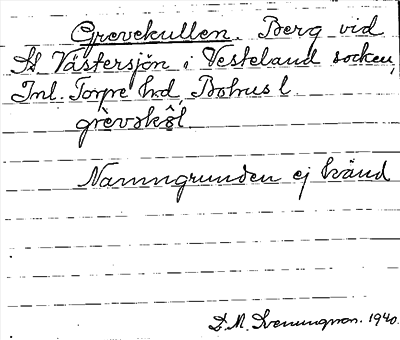 Grevekullen. Berg vid
St Västersjön i Vesteland socken,
Inl. Torpe hd, Bohus l.
grèvəkùl
Namngrunden ej känd
D. M. Svenningson. 1940.